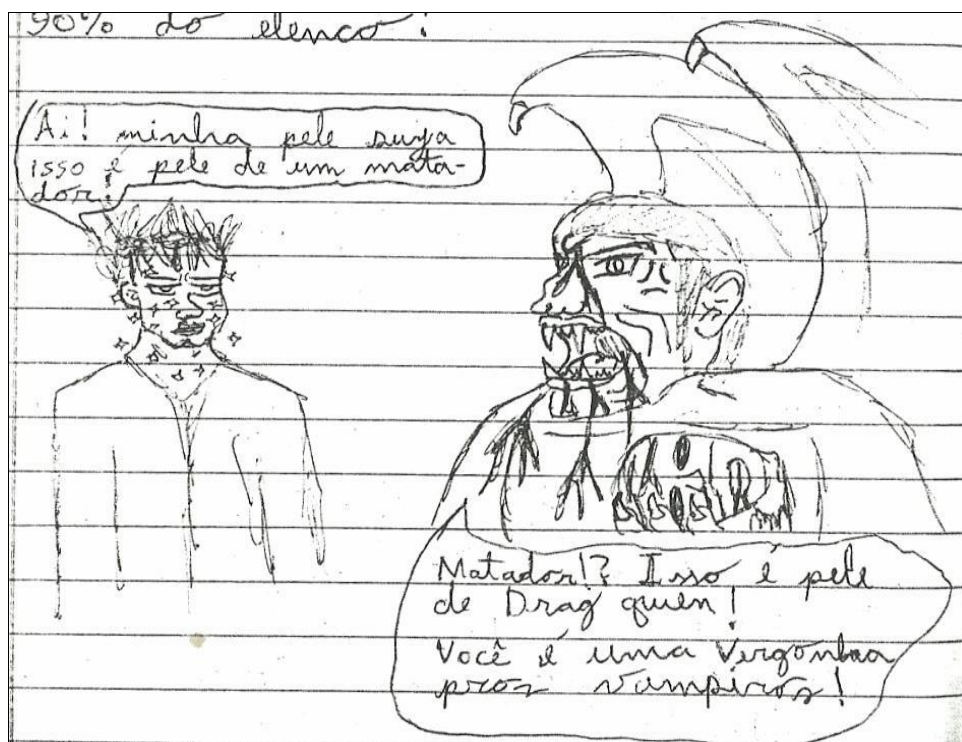 90% do elenco:
Ai! minha pele suja
isso é pele de um mata-
dor!
Matador!? Isso é pele
de Drag quien!
Você é uma Vergonha
pros vampiros!